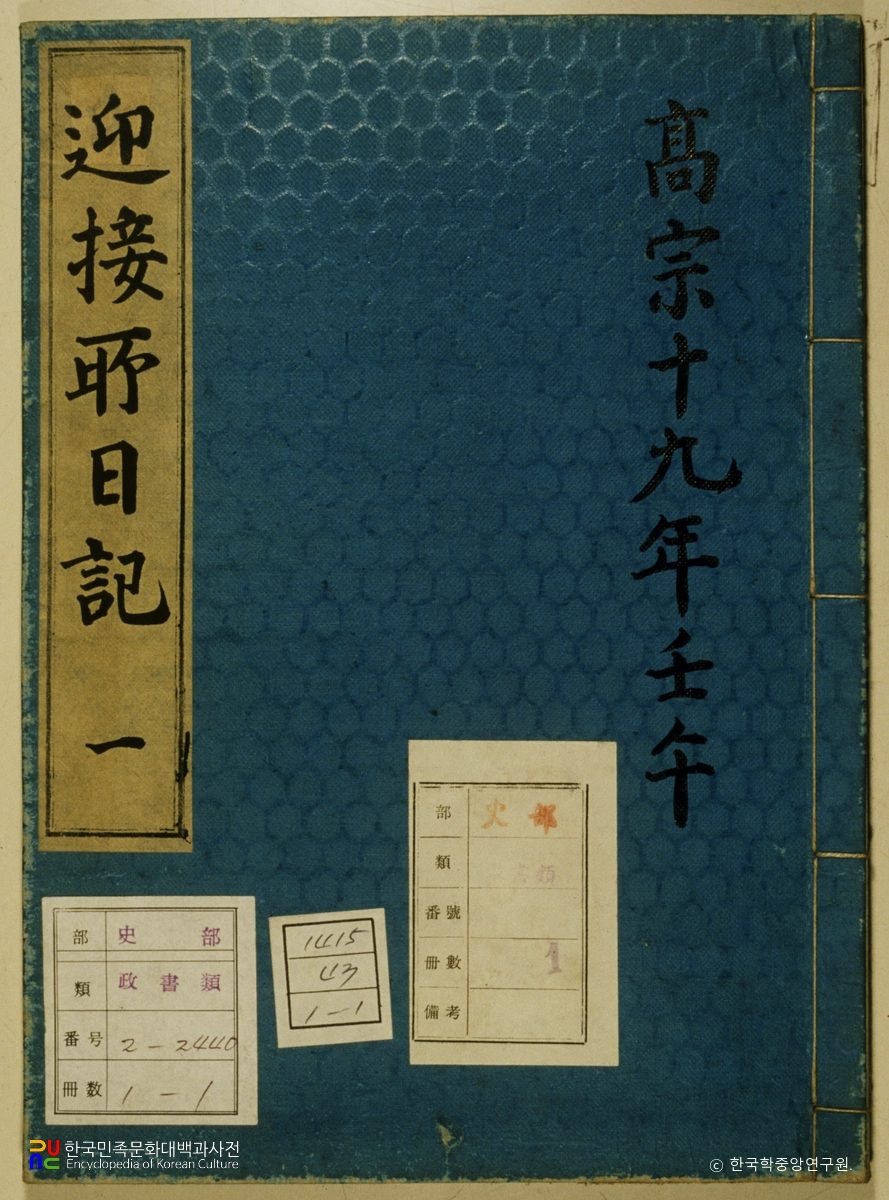 高宗十九年壬午
迎接所日記 一
部 史部
類 政書類
番号 2-2440
冊数 1-1
1415
43
1-1
部 史部
類 書類
番號
冊數 1
備考
한국민족문화대백과사전
Encyclopedia of Korean Culture
ⓒ 한국학중앙연구원